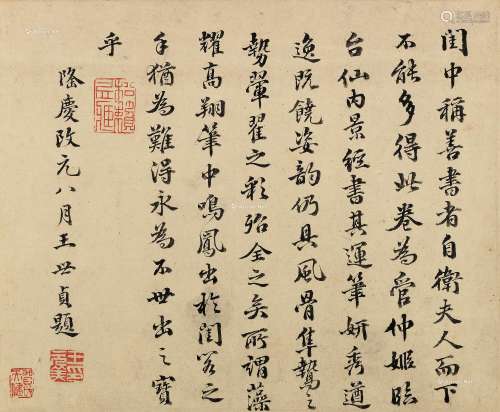 閨中稱善書者自衛夫人而下
不能多得此卷為管仲姬臨
台仙内景經書其運筆妍秀遒
逸既饒姿韵仍具風骨隼鷙之
勢翬翟之彩殆全之矣所謂藻
耀高翔筆中鳴鳳出於閨之
手猶為難得永為不世出之寶
乎
隆慶改元八月王世貞題